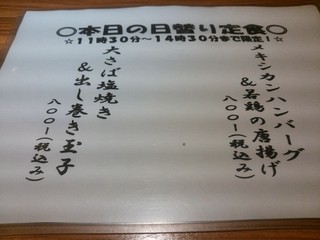 ○本日の日替り定食○
☆11時30分～14時30分まで限定！☆
メキシカンハンバーグ
&若鶏の唐揚げ
八〇〇ー(税込み)
大さば塩焼き
&出し巻き玉子
八〇〇ー(税込み)